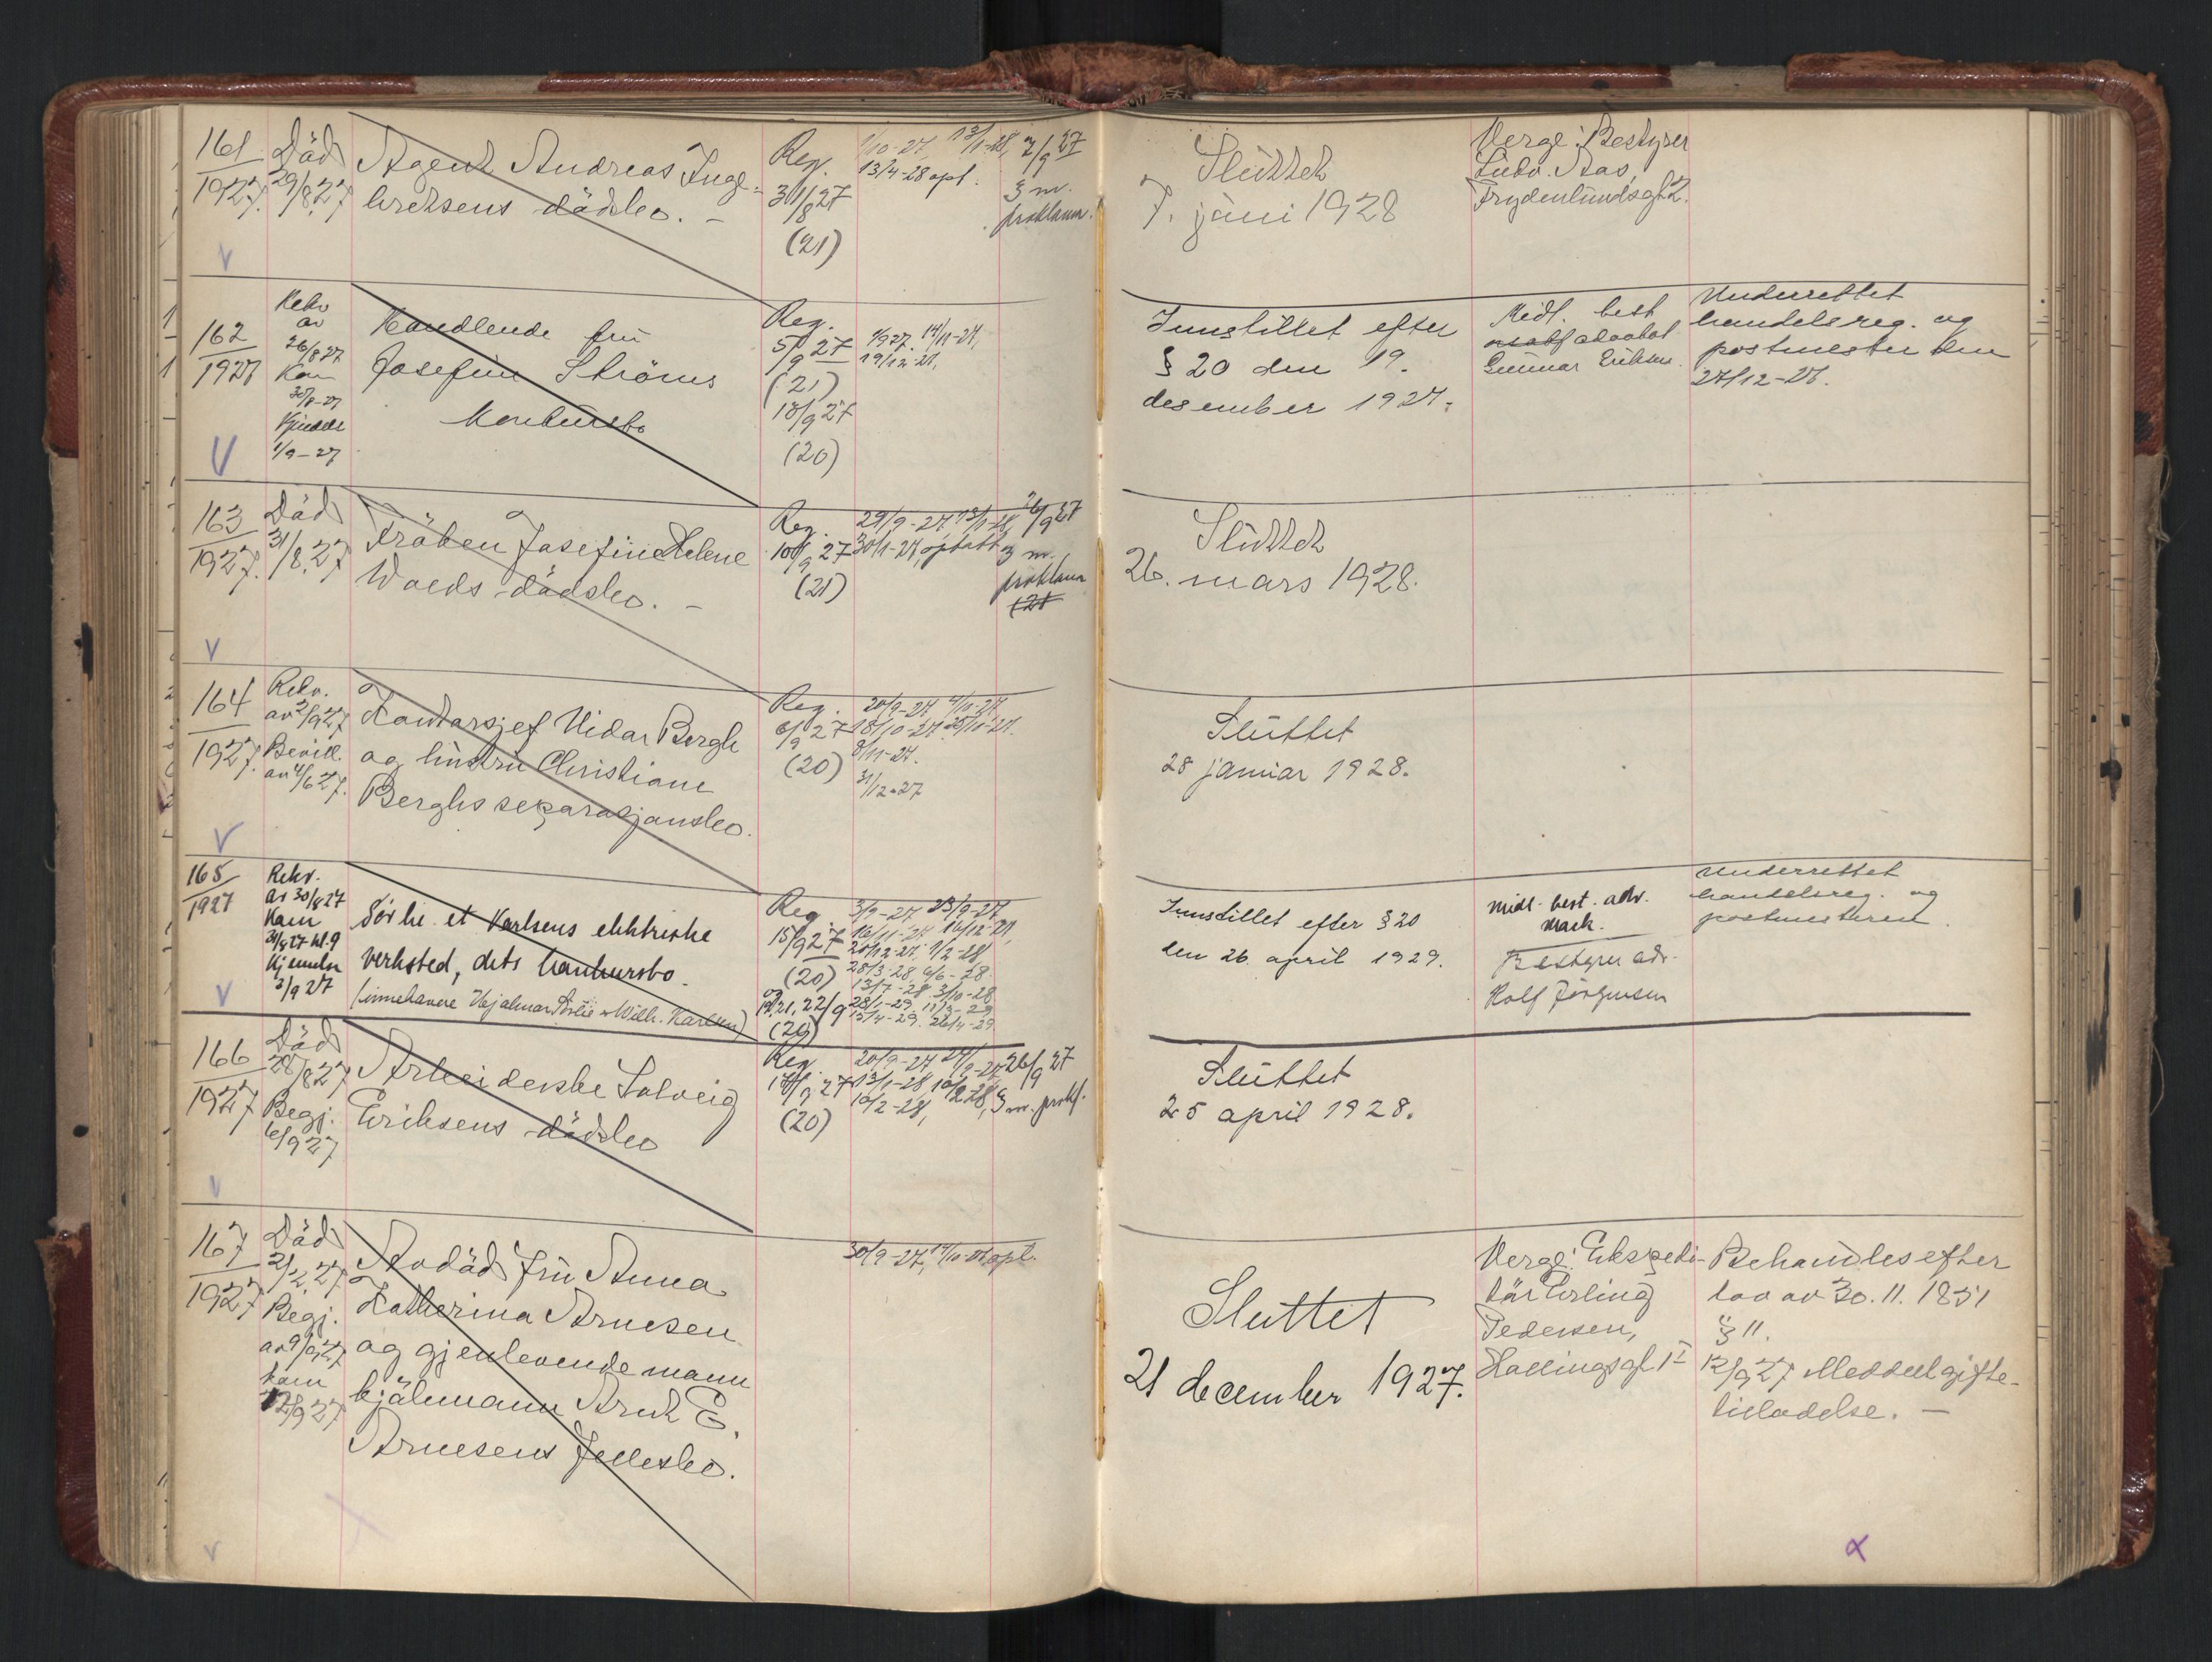 161
1927.
Död
29/8.27
Agent Andreas Inge-
brektsens dödsbo. –
Reg.
31/8 27
(21)
1/10-27, 13/1-28,
13/4-28 opt.
2/9 27
3 m.
proklama.
Sluttet
7. juni 1928
Verge: Bestyrer
Ludv. Aas,
Frydenlundsgt 2.
162
1927
Rekv
av
26/8 27
Kom
30/8-27
Kjendelse
1/9-27
Handlende fru
Josefine Ströms
konkursbo
Reg.
5/9 27
(21)
18/9 27
(20)
14/11-27,
19/12-27,
Innstillet efter
§ 20 den 19.
desember 1927.
Midl. best
advokat
Gunnar Eriksen
Underrettet
handelsreg. og
postmester den
27/12-27.
163
1927.
Död
31/8.27
Fröken Josefine Helene
Wolds dödsbo. –
Reg.
10/9 27
(21)
29/9-27, 13/1-28,
30/11-27, optatt
26/9 27
3 m.
proklama
(21
Sluttet
26. mars 1928.
164
1927.
Rekv.
av 2/9 27
Bevill.
av 4/6 27.
Kontorsjef Vidar Bergh
og hustru Christiane
Berghs separasjonsbo.
Reg.
6/9 27
(20)
20/9-27 4/10-27
18/10-27 25/10-27.
8/11-27.
31/12-27
Sluttet
28 januar 1928.
165
1927
Rekv.
av 30/8 27
Kom
31/8 27 kl. 9
Kjennelse
3/9 27
Sörlie et Karlsens elektriske
verksted, dets konkursbo.
(innehavere Hjalmar Sörlie & Wilh. Karlsen)
Reg.
15/9 27
(20)
og
19, 21, 22/9
(20)
3/9-27 23/9-27
16/11-27 16/12-27,
20/12-27. 1/2-28
28/3-28 6/6-28.
13/7-28 3/10-28
28/1-29. 11/3-29
15/4-29. 26/4-29
Innstillet efter § 20
den 26. april 1929.
Midl. best. adv.
Mack.
Bestyrer adv.
Rolf Jörgensen
Underrettet
handelsreg. og
postmesteren.
166
1927
Död
28/8 27
Begj.
6/9 27
Arbeiderske Solveig
Eriksens dödsbo
Reg.
17/9 27
(20)
20/9-27 27/9-27
13/1-28, 10/2-28,
10/2-28,
26/9 27
3 m. prokl.
Sluttet
25 april 1928.
167
1927
Död
21/2.27
Begj.
av 9/9 27
kom
12/9 27
Avdöd fru Anna
Katherina Arnesen
og gjenlevende mann
kjölmann Arnt E.
Arnesens fellesbo.
30/9-27, 14/10-27 opt.
Sluttet
21 december 1927.
Verge: Ekspedi-
tör Erling
Pedersen,
Hallingsgt 1 I
Behandles efter
lov av 30.11.1851
§ 11.
12/9 27 Meddeelt gifte-
tilladelse. –